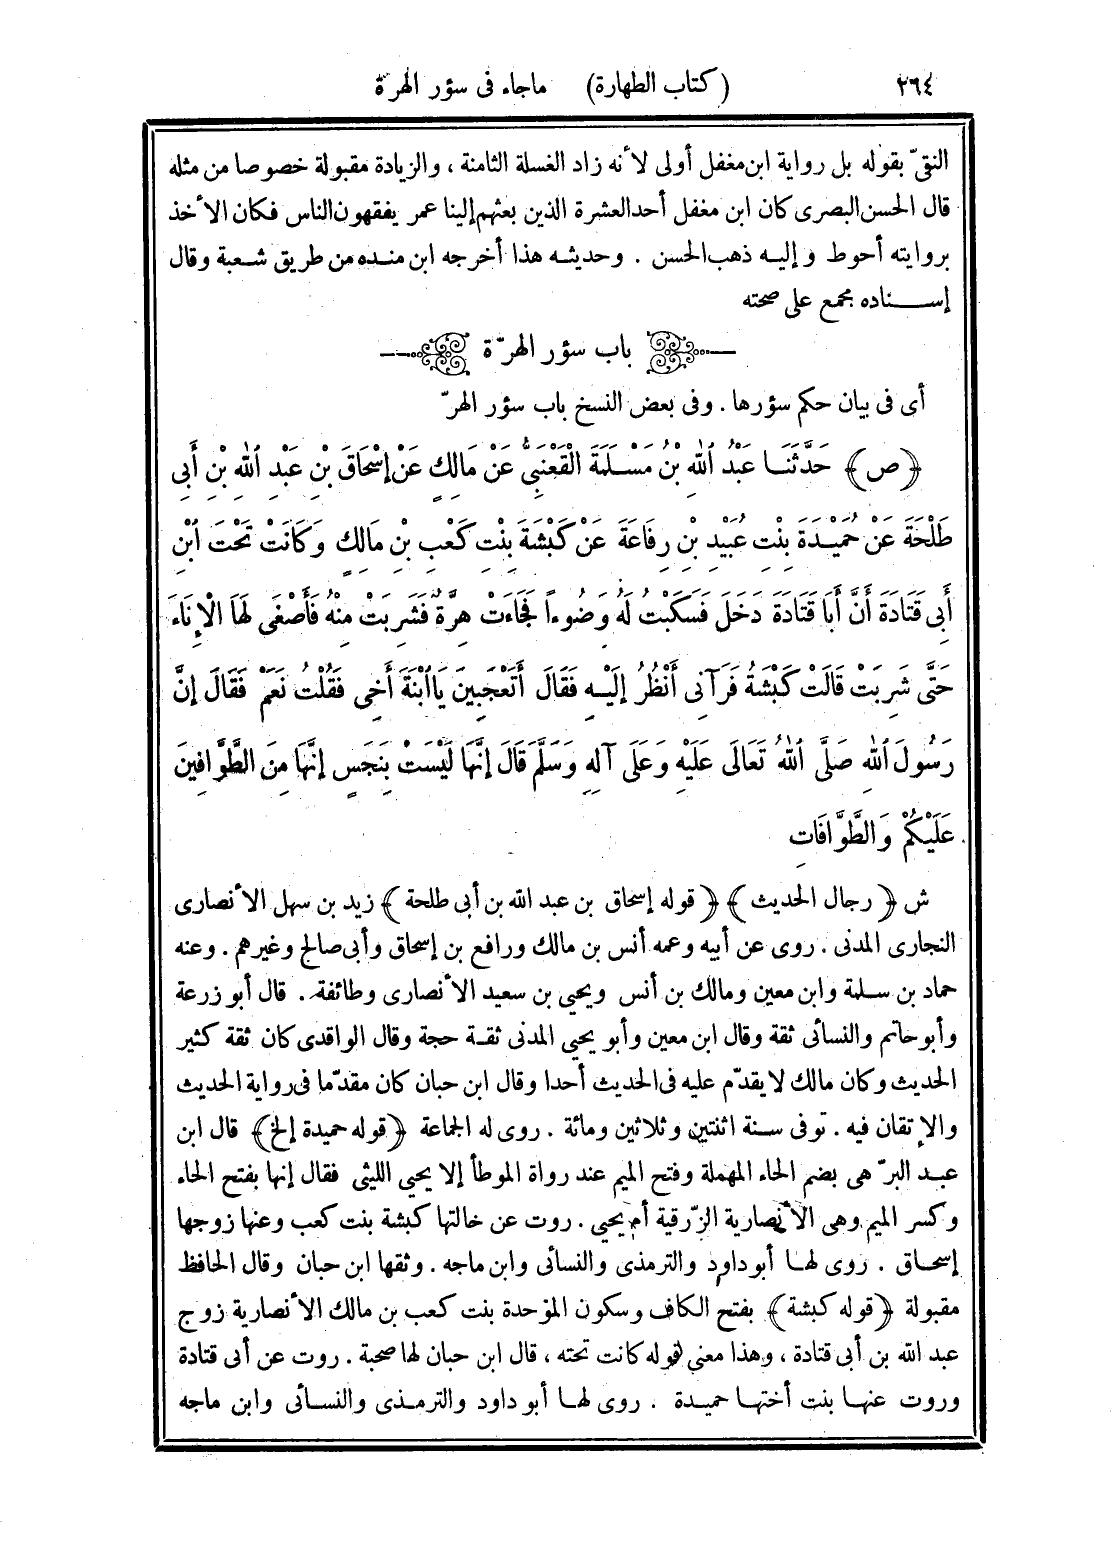 ٢٦٤ (كتاب الطهارة) ماجاء فى سؤر الهرة
النقىّ بقوله بل رواية ابن مغفل أولى لأنه زاد الغسلة الثامنة ، والزيادة مقبولة خصوصا من مثله
قال الحسن البصرى كان ابن مغفل أحد العشرة الذين بعثهم إلينا عمر يفقهون الناس فكان الأخذ
بروايته أحوط وإليه ذهب الحسن . وحديثه هذا أخرجه ابن منده من طريق شعبة وقال
إسناده مجمع على صحته
باب سؤر الهرّة
أى فى بيان حكم سؤرها . وفى بعض النسخ باب سؤر الهرّ
﴿ص﴾ حَدَّثَنَا عَبْدُ اللهِ بْنُ مَسْلَمَةَ الْقَعْنَبِىُّ عَنْ مَالِكٍ عَنْ إِسْحَاقَ بْنِ عَبْدِ اللهِ بْنِ أَبِى
طَلْحَةَ عَنْ حُمَيْدَةَ بِنْتِ عُبَيْدِ بْنِ رِفَاعَةَ عَنْ كَبْشَةَ بِنْتِ كَعْبِ بْنِ مَالِكٍ وَكَانَتْ تَحْتَ ابْنِ
أَبِى قَتَادَةَ أَنَّ أَبَا قَتَادَةَ دَخَلَ فَسَكَبْتُ لَهُ وَضُوءاً فَجَاءَتْ هِرَّةٌ فَشَرِبَتْ مِنْهُ فَأَصْغَى لَهَا الْإِنَاءَ
حَتَّى شَرِبَتْ قَالَتْ كَبْشَةُ فَرَآنِى أَنْظُرُ إِلَيْهِ فَقَالَ أَتَعْجَبِينَ يَا ابْنَةَ أَخِى فَقُلْتُ نَعَمْ فَقَالَ إِنَّ
رَسُولَ اللهِ صَلَّى اللهُ تَعَالَى عَلَيْهِ وَعَلَى آلِهِ وَسَلَّمَ قَالَ إِنَّهَا لَيْسَتْ بِنَجَسٍ إِنَّهَا مِنَ الطَّوَّافِينَ
عَلَيْكُمْ وَالطَّوَّافَاتِ
ش ﴿رجال الحديث﴾ ﴿قوله إسحاق بن عبد الله بن أبى طلحة﴾ زيد بن سهل الأنصارى
النجارى المدنى . روى عن أبيه وعمه أنس بن مالك ورافع بن إسحاق وأبى صالح وغيرهم . وعنه
حماد بن سلمة وابن معين ومالك بن أنس ويحيى بن سعيد الأنصارى وطائفة . قال أبو زرعة
وأبو حاتم والنسائى ثقة وقال ابن معين وأبو يحيى المدنى ثقة حجة وقال الواقدى كان ثقة كثير
الحديث وكان مالك لا يقدّم عليه فى الحديث أحدا وقال ابن حبان كان مقدّما فى رواية الحديث
والإتقان فيه . توفى سنة اثنتين وثلاثين ومائة . روى له الجماعة ﴿قوله حميدة إلخ﴾ قال ابن
عبد البرّ هى بضم الحاء المهملة وفتح الميم عند رواة الموطأ إلا يحيى الليثى فقال إنها بفتح الحاء
وكسر الميم وهى الأنصارية الزّرقية أم يحيى . روت عن خالتها كبشة بنت كعب وعنها زوجها
إسحاق . روى لها أبو داود والترمذى والنسائى وابن ماجه . وثقها ابن حبان وقال الحافظ
مقبولة ﴿قوله كبشة﴾ بفتح الكاف وسكون الموحدة بنت كعب بن مالك الأنصارية زوج
عبد الله بن أبى قتادة ، وهذا معنى قوله كانت تحته ، قال ابن حبان لها صحبة . روت عن أبى قتادة
وروت عنها بنت أختها حميدة . روى لها أبو داود والترمذى والنسائى وابن ماجه